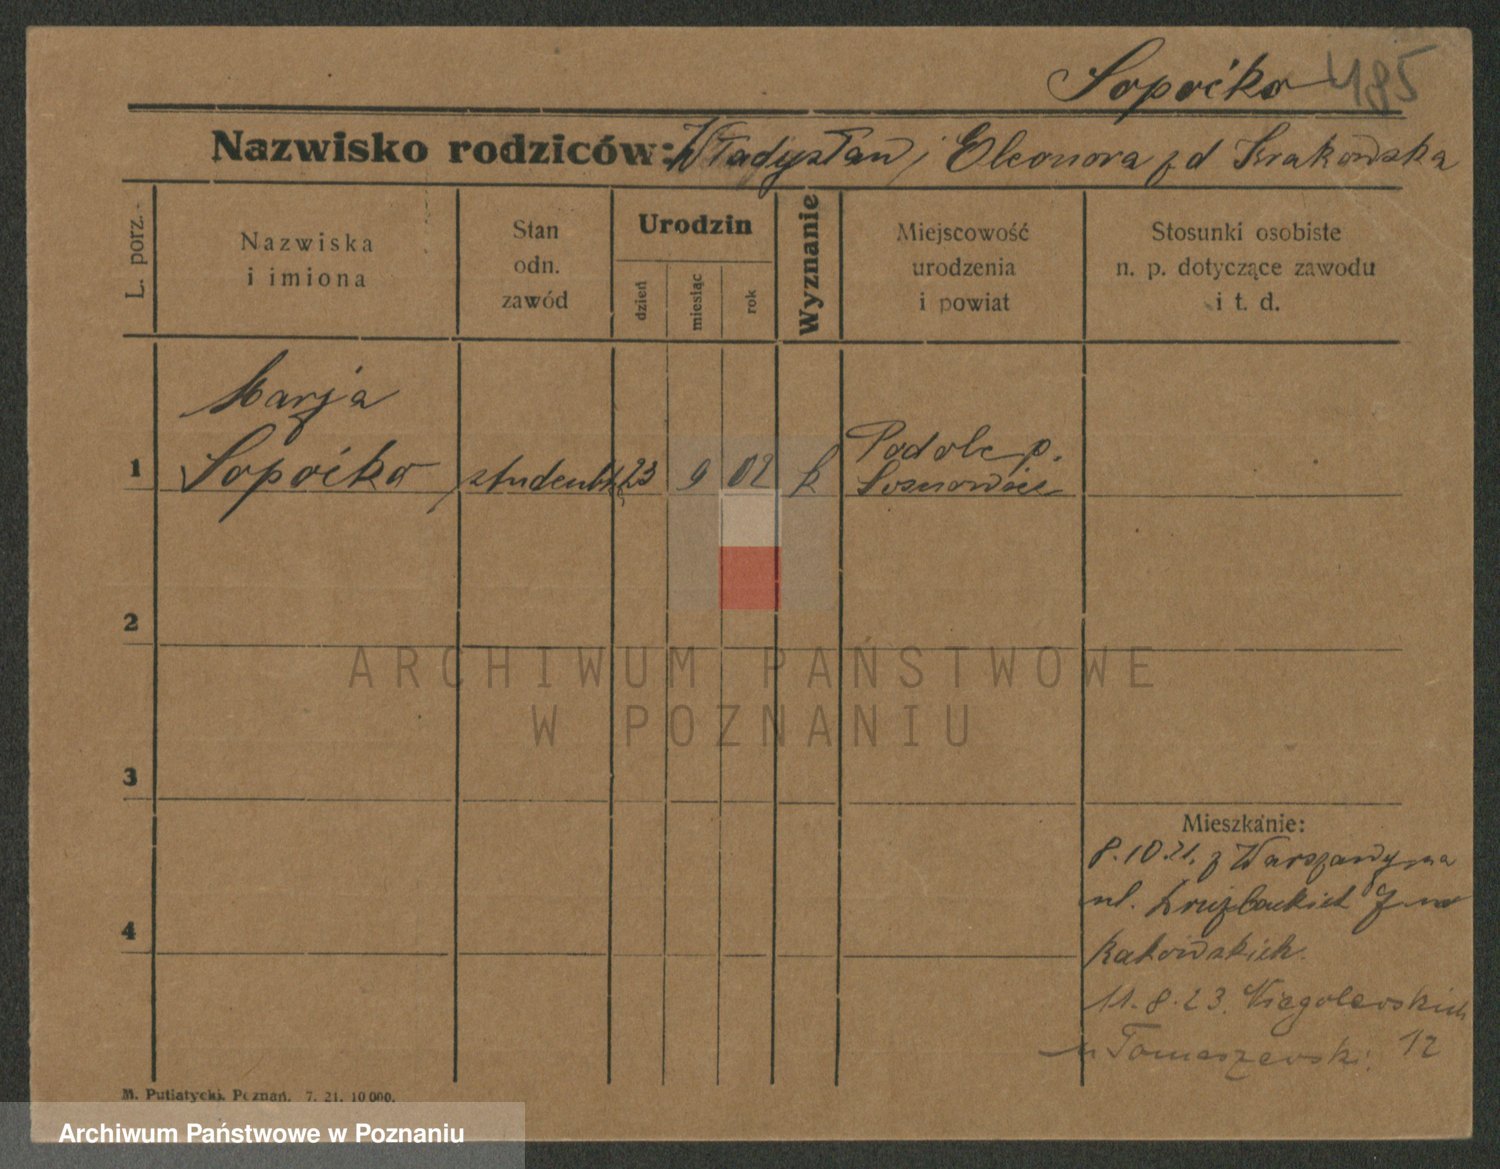 Sopoćko 485
Nazwisko rodziców: Władysław i Eleonora z d Krakowska
L. porz.
Nazwiska
i imiona
Stan
odn.
zawód
Urodzin
dzień
miesiąc
rok
Wyznanie
Miejscowość
urodzenia
i powiat
Stosunki osobiste
n. p. dotyczące zawodu
i t. d.
Marja
1 Sopoćko studentk 23 9 02 k
Podole p.
Sosnowice
2
3
4
Mieszkanie:
8.10.21. z Warszawy na
ul.
11.8.23. Niegolewskich
u Tomaszewski 12
M. Putiatycki, Poznań. 7. 21. 10 000.
ARCHIWUM PAŃSTWOWE
W POZNANIU
Archiwum Państwowe w Poznaniu